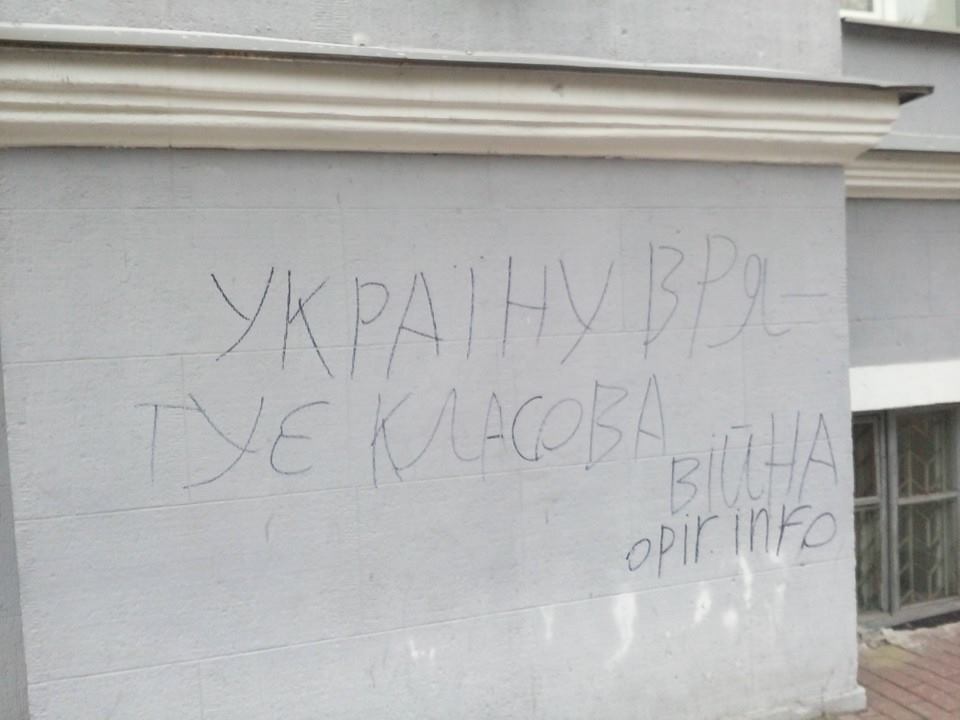 УКРАЇНУ ВРЯ-
ТУЄ КЛАСОВА
ВІЙНА
opir.info